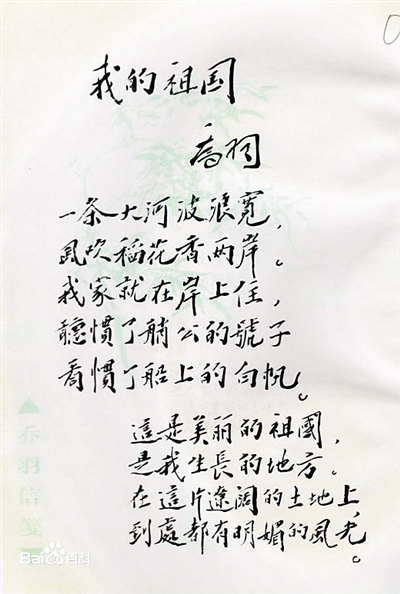 我的祖国
乔羽
一条大河波浪寬，
風吹稻花香两岸。
我家就在岸上住，
聽慣了艄公的號子
看慣了船上的白帆。
這是美丽的祖國，
是我生長的地方。
在這片遼阔的土地上，
到處都有明媚的風光。
乔羽信笺
Bai百科